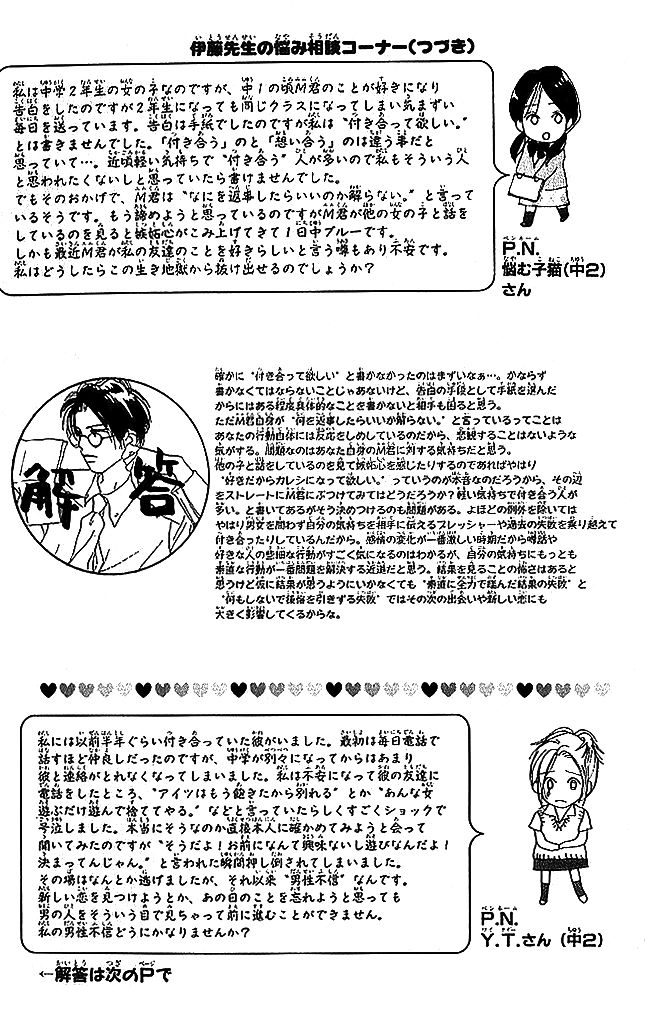 伊藤先生の悩み相談コーナー(つづき)
私は中学2年生の女の子なのですが、中1の頃M君のことが好きになり
告白をしたのですが2年生になっても同じクラスになってしまい気まずい
毎日を送っています。告白は手紙でしたのですが私は〝付き合って欲しい。〟
とは書きませんでした。「付き合う」のと「想い合う」のは違う事だと
思っていて…。近頃軽い気持ちで〝付き合う〟人が多いので私もそういう人
と思われたくないしと思っていたら書けませんでした。
でもそのおかげで、M君は〝なにを返事したらいいのか解らない。〟と言って
いるそうです。もう諦めようと思っているのですがM君が他の女の子と話を
しているのを見ると嫉妬心がこみ上げてきて1日中ブルーです。
しかも最近M君が私の友達のことを好きらしいと言う噂もあり不安です。
私はどうしたらこの生き地獄から抜け出せるのでしょうか?
P.N.
悩む子猫(中2)
さん
解答
確かに〝付き合って欲しい〟と書かなかったのはまずいなぁ…。かならず
書かなくてはならないことじゃあないけど、告白の手段として手紙を選んだ
からにはある程度具体的なことを書かないと相手も困ると思う。
ただM君自身が〝何を返事したらいいか解らない。〟と言っているってことは
あなたの行動自体には反応をしめしているのだから、悲観することはないような
気がする。問題なのはあなた自身のM君に対する気持ちだと思う。
他の子と話をしているのを見て嫉妬心を感じたりするのであればやはり
〝好きだからカレシになって欲しい。〟っていうのが本音なのだろうから、その辺
をストレートにM君にぶつけてみてはどうだろうか?軽い気持ちで付き合う人が
多い。と書いてあるがそう決めつけるのも問題がある。よほどの例外を除いては
やはり男女を問わず自分の気持ちを相手に伝えるプレッシャーや過去の失敗を乗り越えて
付き合ったりしているんだから。感情の変化が一番激しい時期だから噂話や
好きな人の些細な行動がすごく気になるのはわかるが、自分の気持ちにもっとも
素直な行動が一番問題を解決する近道だと思う。結果を見ることの怖さはあると
思うけど仮に結果が思うようにいかなくても〝素直に全力で臨んだ結果の失敗〟と
〝何もしないで後悔を引きずる失敗〟ではその次の出会いや新しい恋にも
大きく影響してくるからな。
私には以前半年ぐらい付き合っていた彼がいました。最初は毎日電話で
話すほど仲良しだったのですが、中学が別々になってからはあまり
彼と連絡がとれなくなってしまいました。私は不安になって彼の友達に
電話をしたところ、〝アイツはもう飽きたから別れる〟とか〝あんな女
遊ぶだけ遊んで捨ててやる。〟などと言っていたらしくすごくショックで
号泣しました。本当にそうなのか直接本人に確かめてみようと会って
聞いてみたのですが〝そうだよ!お前になんて興味ないし遊びなんだよ!
決まってんじゃん。〟と言われた瞬間押し倒されてしまいました。
その場はなんとか逃げましたが、それ以来〝男性不信〟なんです。
新しい恋を見つけようとか、あの日のことを忘れようと思っても
男の人をそういう目で見ちゃって前に進むことができません。
私の男性不信どうにかなりませんか?
P.N.
Y.T.さん(中2)
←解答は次のPで